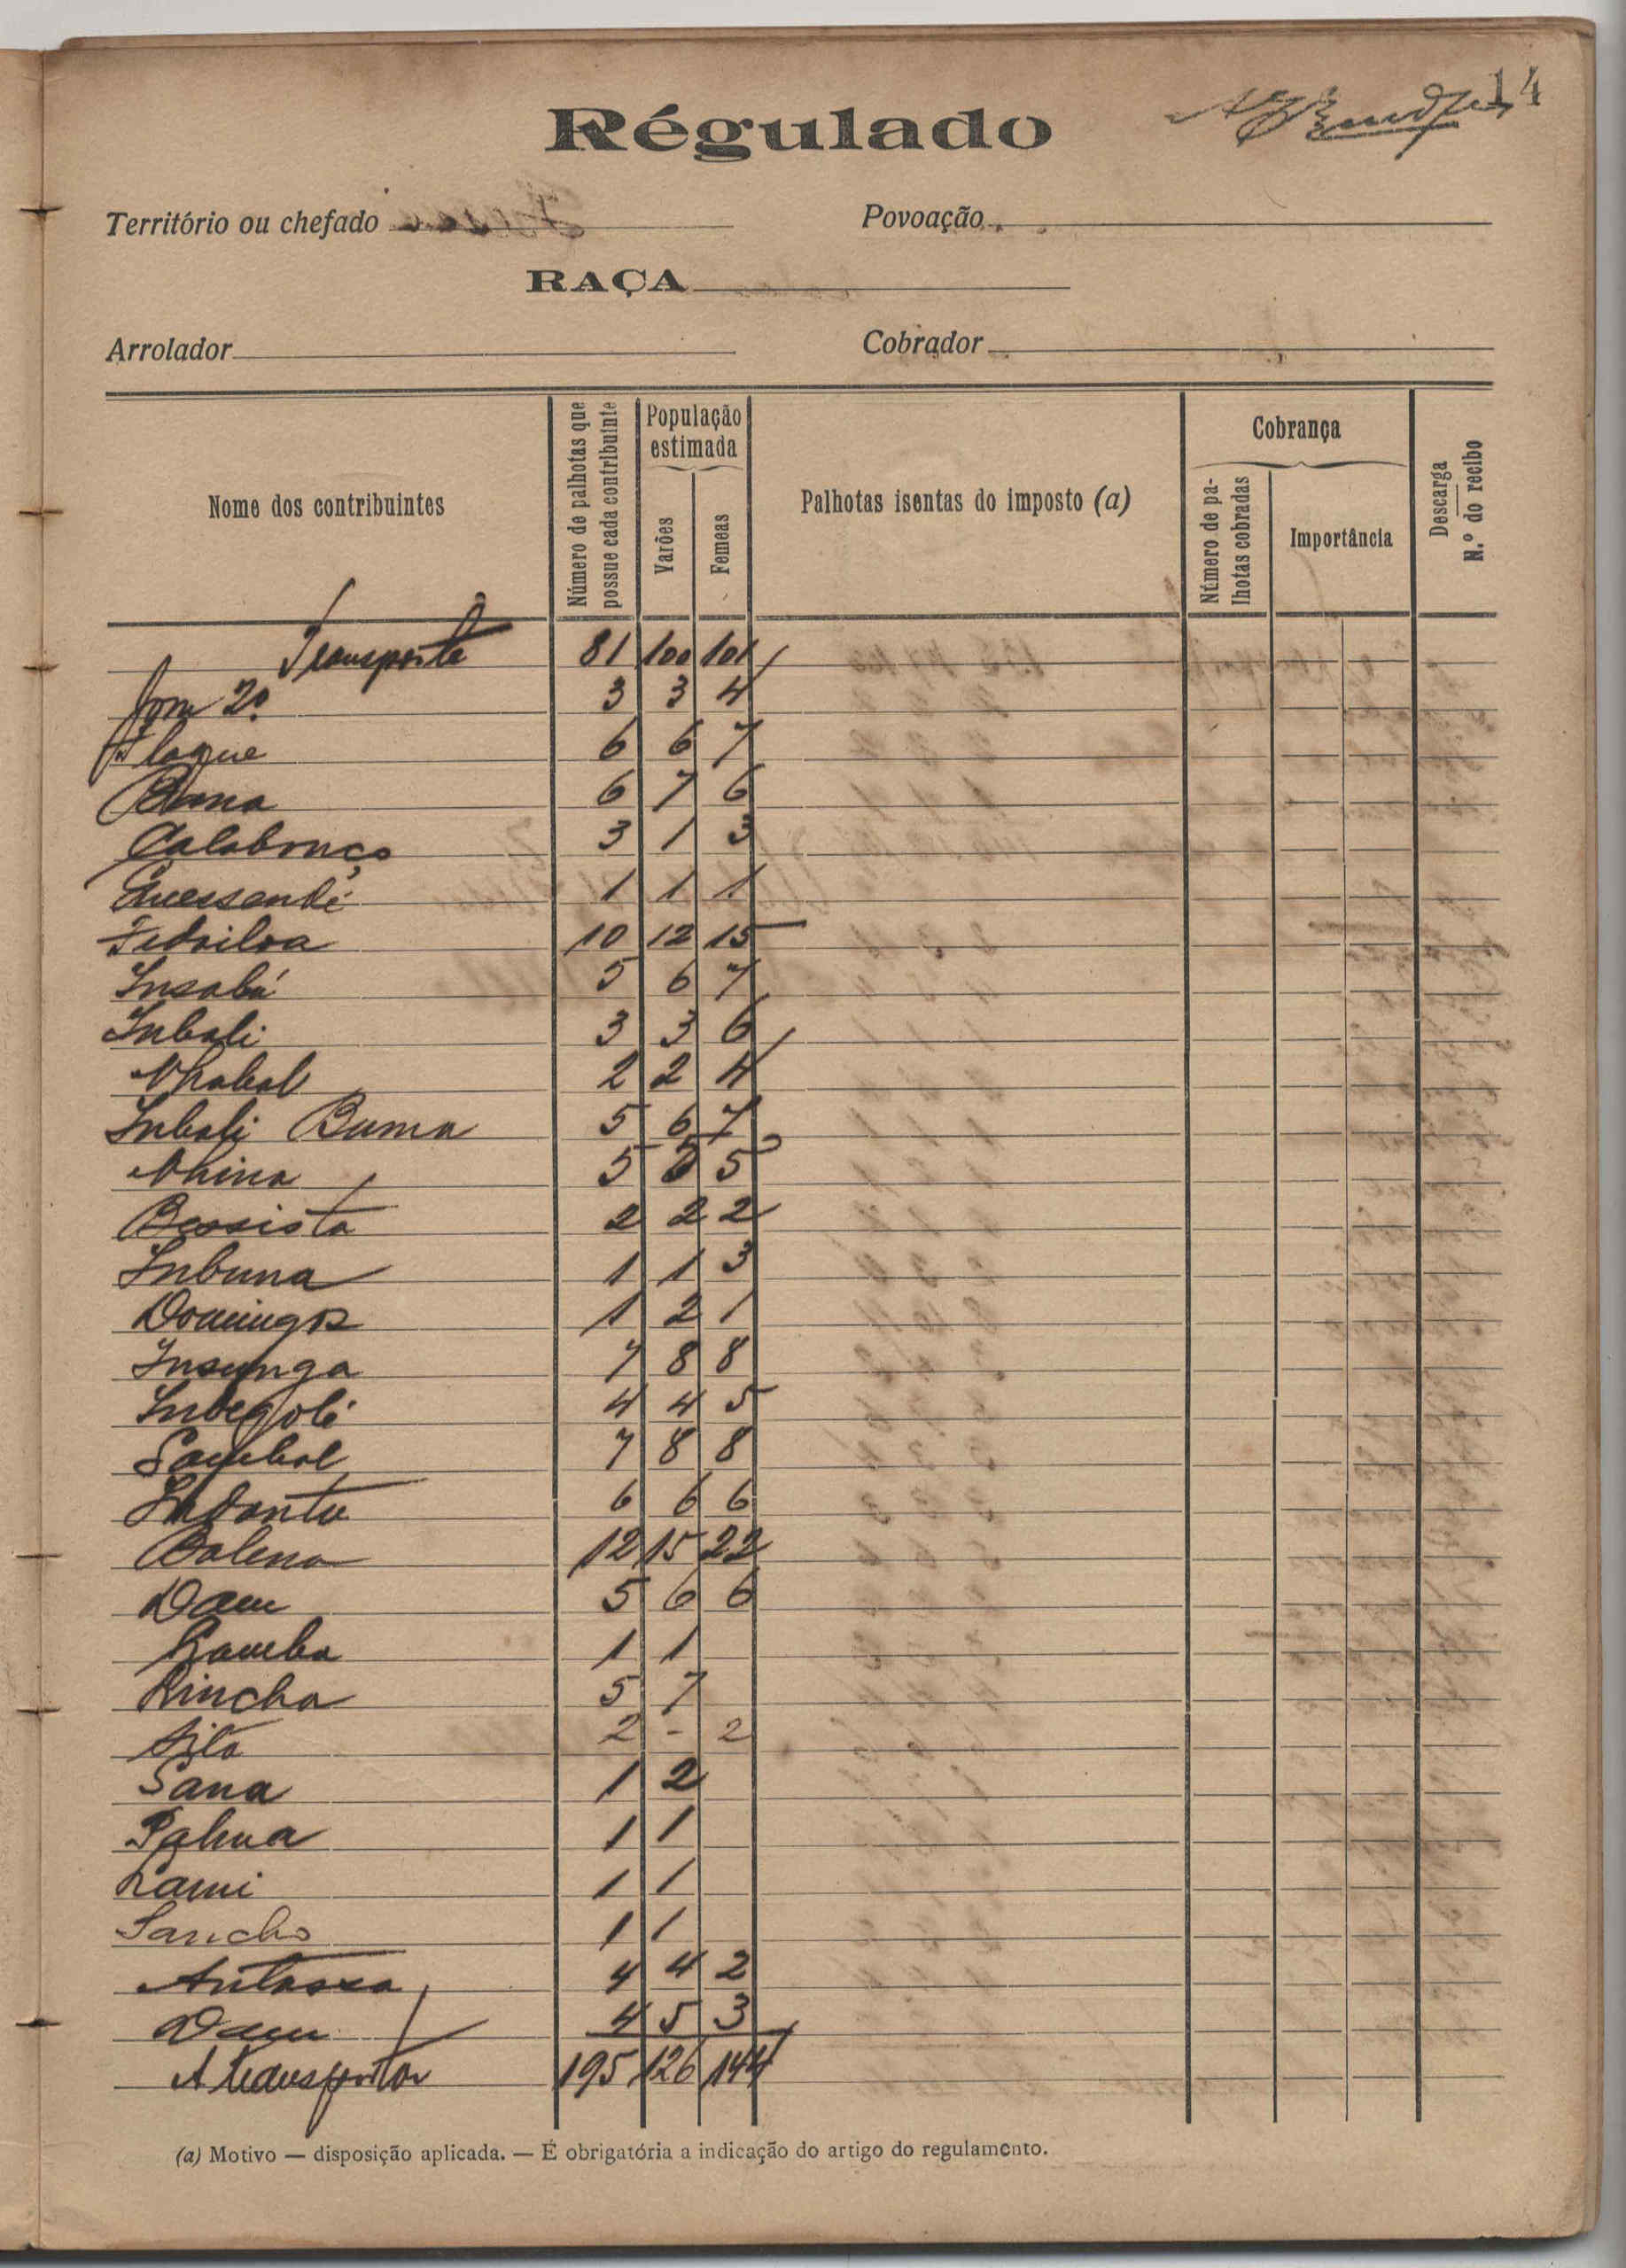 14
Régulado
Território ou chefado
Povoação
RAÇA
Arrolador
Cobrador
Nome dos contribuintes
Número de palhotas que possue cada contribuinte
População estimada
Varões
Femeas
Palhotas isentas do imposto (a)
Cobrança
Número de palhotas cobradas
Importância
Descarga
N.º do recibo
Transporte 81 100 101
2º 3 3 4
6 6 7
6 7 6
Calabouço 3 1 3
1 1 1
10 12 15
Insabá 5 6 7
Inbali 3 3 6
Nhabal 2 2 4
Inbali Buma 5 6 7
Nhina 5 5 5
Bessistá 2 2 2
Inbuna 1 1 3
Domingos 1 2 1
Insunga 7 8 8
4 4 5
Sambal 7 8 8
6 6 6
12 15 22
Dam 5 6 6
1 1
Rincha 5 7
2 - 2
Sana 1 2
1 1
Lami 1 1
Sancho 1 1
4 4 2
Dam 4 5 3
A transportar 195 126 144
(a) Motivo — disposição aplicada. — É obrigatória a indicação do artigo do regulamento.